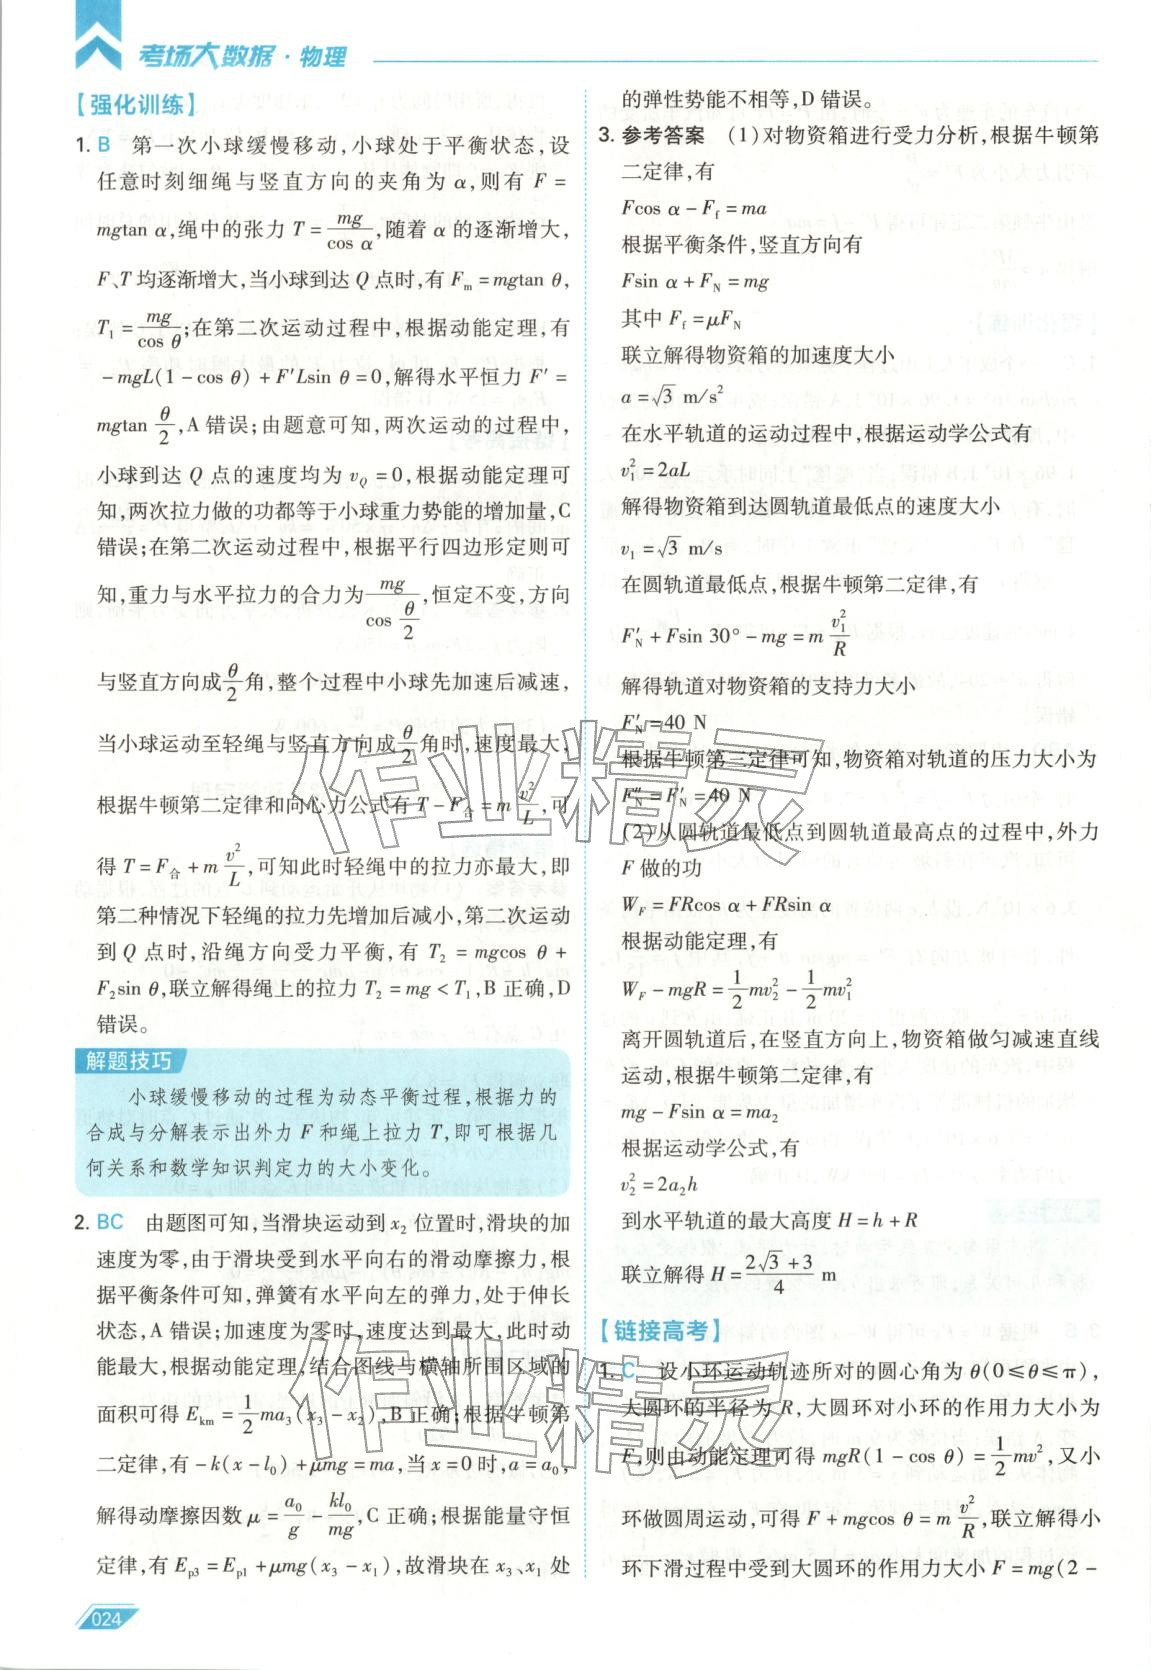 考场大数据·物理
【强化训练】
1. B 第一次小球缓慢移动,小球处于平衡状态,设
任意时刻细绳与竖直方向的夹角为 α,则有 F =
mgtan α,绳中的张力 T = mg/cos α,随着 α 的逐渐增大,
F、T 均逐渐增大,当小球到达 Q 点时,有 Fₘ = mgtan θ,
T₁ = mg/cos θ;在第二次运动过程中,根据动能定理,有
-mgL(1-cos θ)+F′Lsin θ=0,解得水平恒力 F′=
mgtan θ/2,A 错误;由题意可知,两次运动的过程中,
小球到达 Q 点的速度均为 v_Q=0,根据动能定理可
知,两次拉力做的功都等于小球重力势能的增加量,C
错误;在第二次运动过程中,根据平行四边形定则可
知,重力与水平拉力的合力为 mg/cos θ/2,恒定不变,方向
与竖直方向成 θ/2 角,整个过程中小球先加速后减速,
当小球运动至轻绳与竖直方向成 θ/2 角时,速度最大,
根据牛顿第二定律和向心力公式有 T-F合=m v²/L,可
得 T=F合+m v²/L,可知此时轻绳中的拉力亦最大,即
第二种情况下轻绳的拉力先增加后减小,第二次运动
到 Q 点时,沿绳方向受力平衡,有 T₂ = mgcos θ +
F₂sin θ,联立解得绳上的拉力 T₂ = mg < T₁,B 正确,D
错误。
解题技巧
小球缓慢移动的过程为动态平衡过程,根据力的
合成与分解表示出外力 F 和绳上拉力 T,即可根据几
何关系和数学知识判定力的大小变化。
2. BC 由题图可知,当滑块运动到 x₂ 位置时,滑块的加
速度为零,由于滑块受到水平向右的滑动摩擦力,根
据平衡条件可知,弹簧有水平向左的弹力,处于伸长
状态,A 错误;加速度为零时,速度达到最大,此时动
能最大,根据动能定理,结合图线与横轴所围区域的
面积可得 E_km = 1/2 ma₃(x₃-x₂),B 正确;根据牛顿第
二定律,有 -k(x-l₀)+μmg=ma,当 x=0 时,a=a₀,
解得动摩擦因数 μ = a₀/g - kl₀/mg,C 正确;根据能量守恒
定律,有 E_p3=E_p1+μmg(x₃-x₁),故滑块在 x₃、x₁ 处
024
的弹性势能不相等,D 错误。
3. 参考答案 (1)对物资箱进行受力分析,根据牛顿第
二定律,有
Fcos α-F_f=ma
根据平衡条件,竖直方向有
Fsin α+F_N=mg
其中 F_f=μF_N
联立解得物资箱的加速度大小
a=√3 m/s²
在水平轨道的运动过程中,根据运动学公式有
v₁²=2aL
解得物资箱到达圆轨道最低点的速度大小
v₁=√3 m/s
在圆轨道最低点,根据牛顿第二定律,有
F′_N+Fsin 30°-mg=m v₁²/R
解得轨道对物资箱的支持力大小
F′_N=40 N
根据牛顿第三定律可知,物资箱对轨道的压力大小为
F″_N=F′_N=40 N
(2)从圆轨道最低点到圆轨道最高点的过程中,外力
F 做的功
W_F=FRcos α+FRsin α
根据动能定理,有
W_F-mgR=1/2 mv₂²-1/2 mv₁²
离开圆轨道后,在竖直方向上,物资箱做匀减速直线
运动,根据牛顿第二定律,有
mg-Fsin α=ma₂
根据运动学公式,有
v₂²=2a₂h
到水平轨道的最大高度 H=h+R
联立解得 H=(2√3+3)/4 m
【链接高考】
1. C 设小环运动轨迹所对的圆心角为 θ(0≤θ≤π),
大圆环的半径为 R,大圆环对小环的作用力大小为
F,则由动能定理可得 mgR(1-cos θ)=1/2 mv²,又小
环做圆周运动,可得 F+mgcos θ=m v²/R,联立解得小
环下滑过程中受到大圆环的作用力大小 F=mg(2-
作业精灵
作业精灵